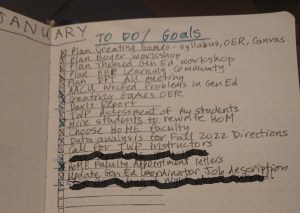 JANUARY
TO DO/ Goals
Plan Creating Games - syllabus, OER, Canvas
Plan Boyer Workshop
Plan Themed Gen Ed workshop
Plan HHR Learning Community
Plan All meeting
AACU Wicked Problems in Gen Ed
Creating Games OER
Report
TWP Assessment of my students
Hire students to rewrite HoM
Choose HoME Faculty
Data analysis for Fall 2022 Directions
Call for TWP instructors
HoME Faculty Appointment letters
Update Gen Ed Coordinator Job description